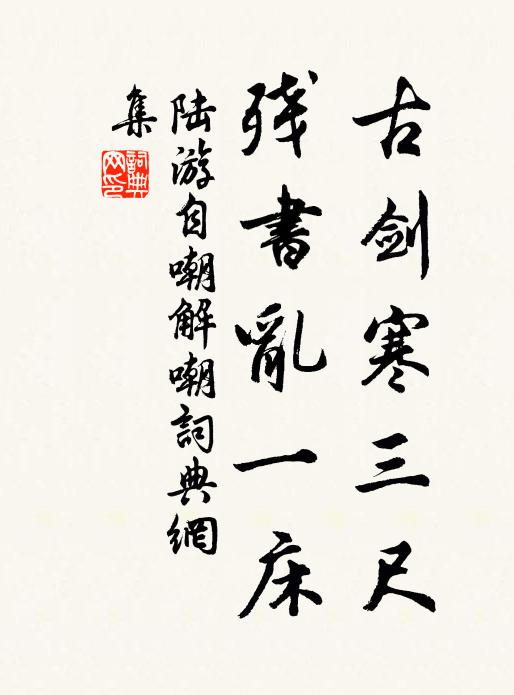 古剑寒三尺
残書亂一床
陆游自嘲解嘲詞典網
集
詞典网印